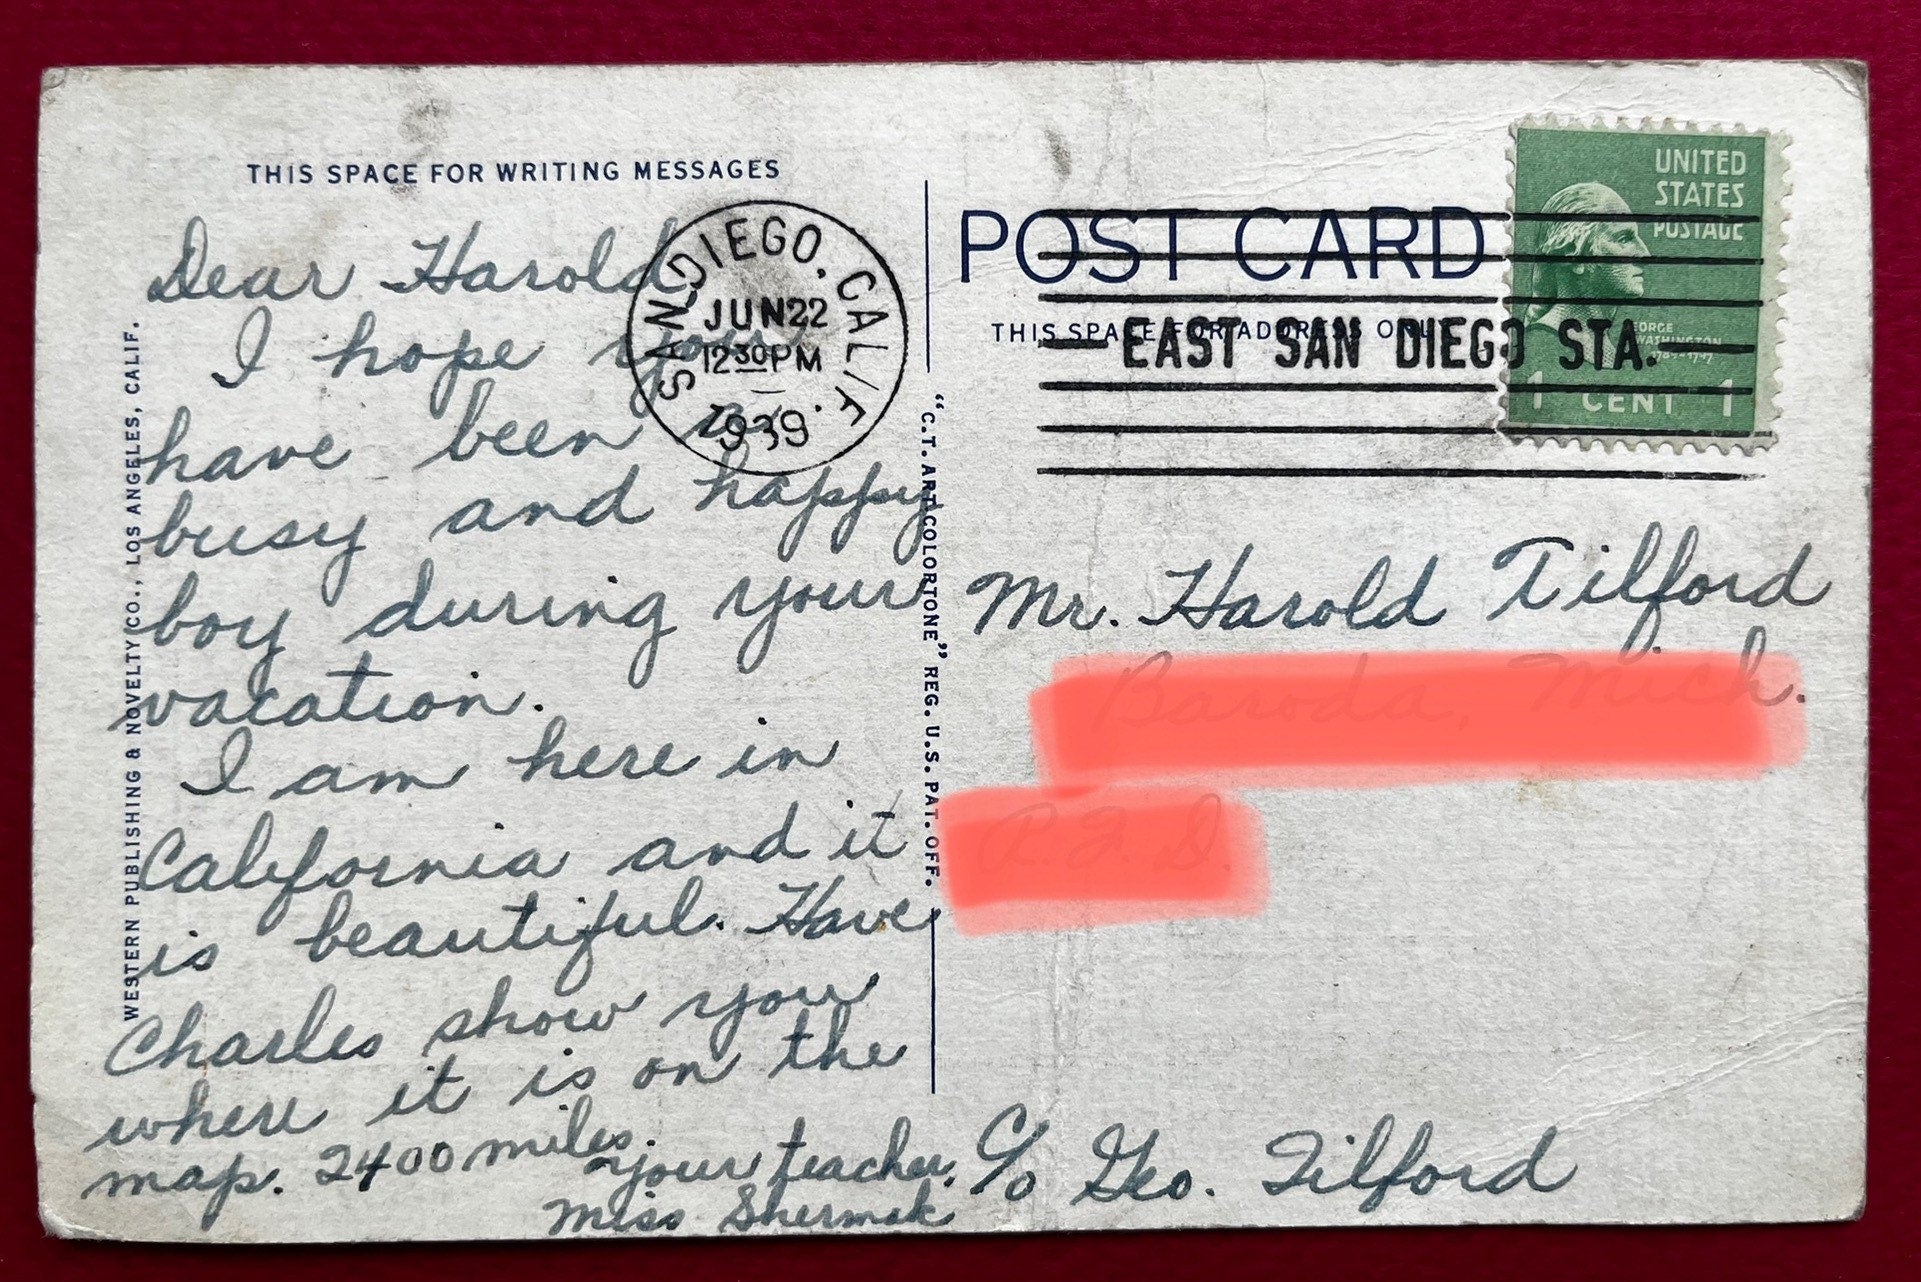 THIS SPACE FOR WRITING MESSAGES
Dear Harold
I hope you
have been a
busy and happy
boy during your
vacation.
I am here in
California and it
is beautiful. Have
Charles show you
where it is on the
map. 2400 miles.
your teacher,
Miss Shermak
WESTERN PUBLISHING & NOVELTY CO., LOS ANGELES, CALIF.
SAN DIEGO, CALIF.
JUN 22
12 30 PM
1939
"C.T. ART-COLORTONE" REG. U.S. PAT. OFF.
POST CARD
THIS SPACE FOR ADDRESS ONLY
EAST SAN DIEGO STA.
UNITED
STATES
POSTAGE
GEORGE
WASHINGTON
1 CENT 1
Mr. Harold Tilford
Baroda, Mich.
R.F.D.
C/o Geo. Tilford